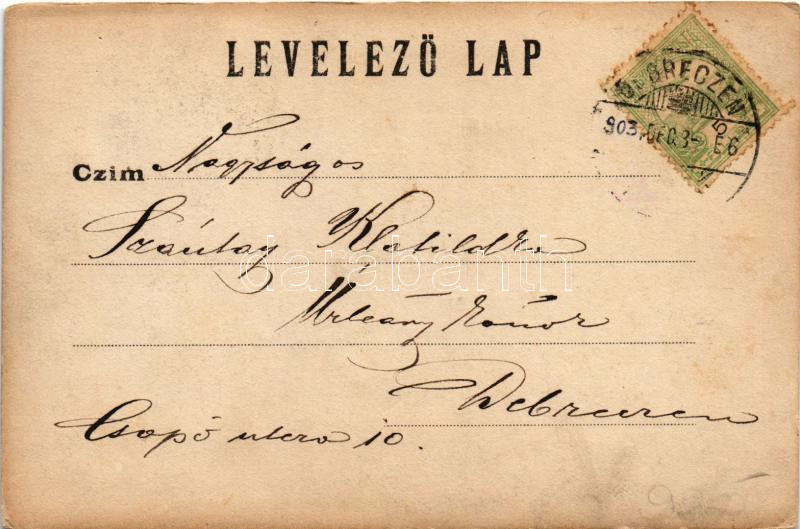 LEVELEZŐ LAP
DEBRECZEN
903. DEC. 3- E6
Czim Nagyságos
Szántay Klotildka
Urleány
Debreczen
Csapó utcza 10.
darabanth